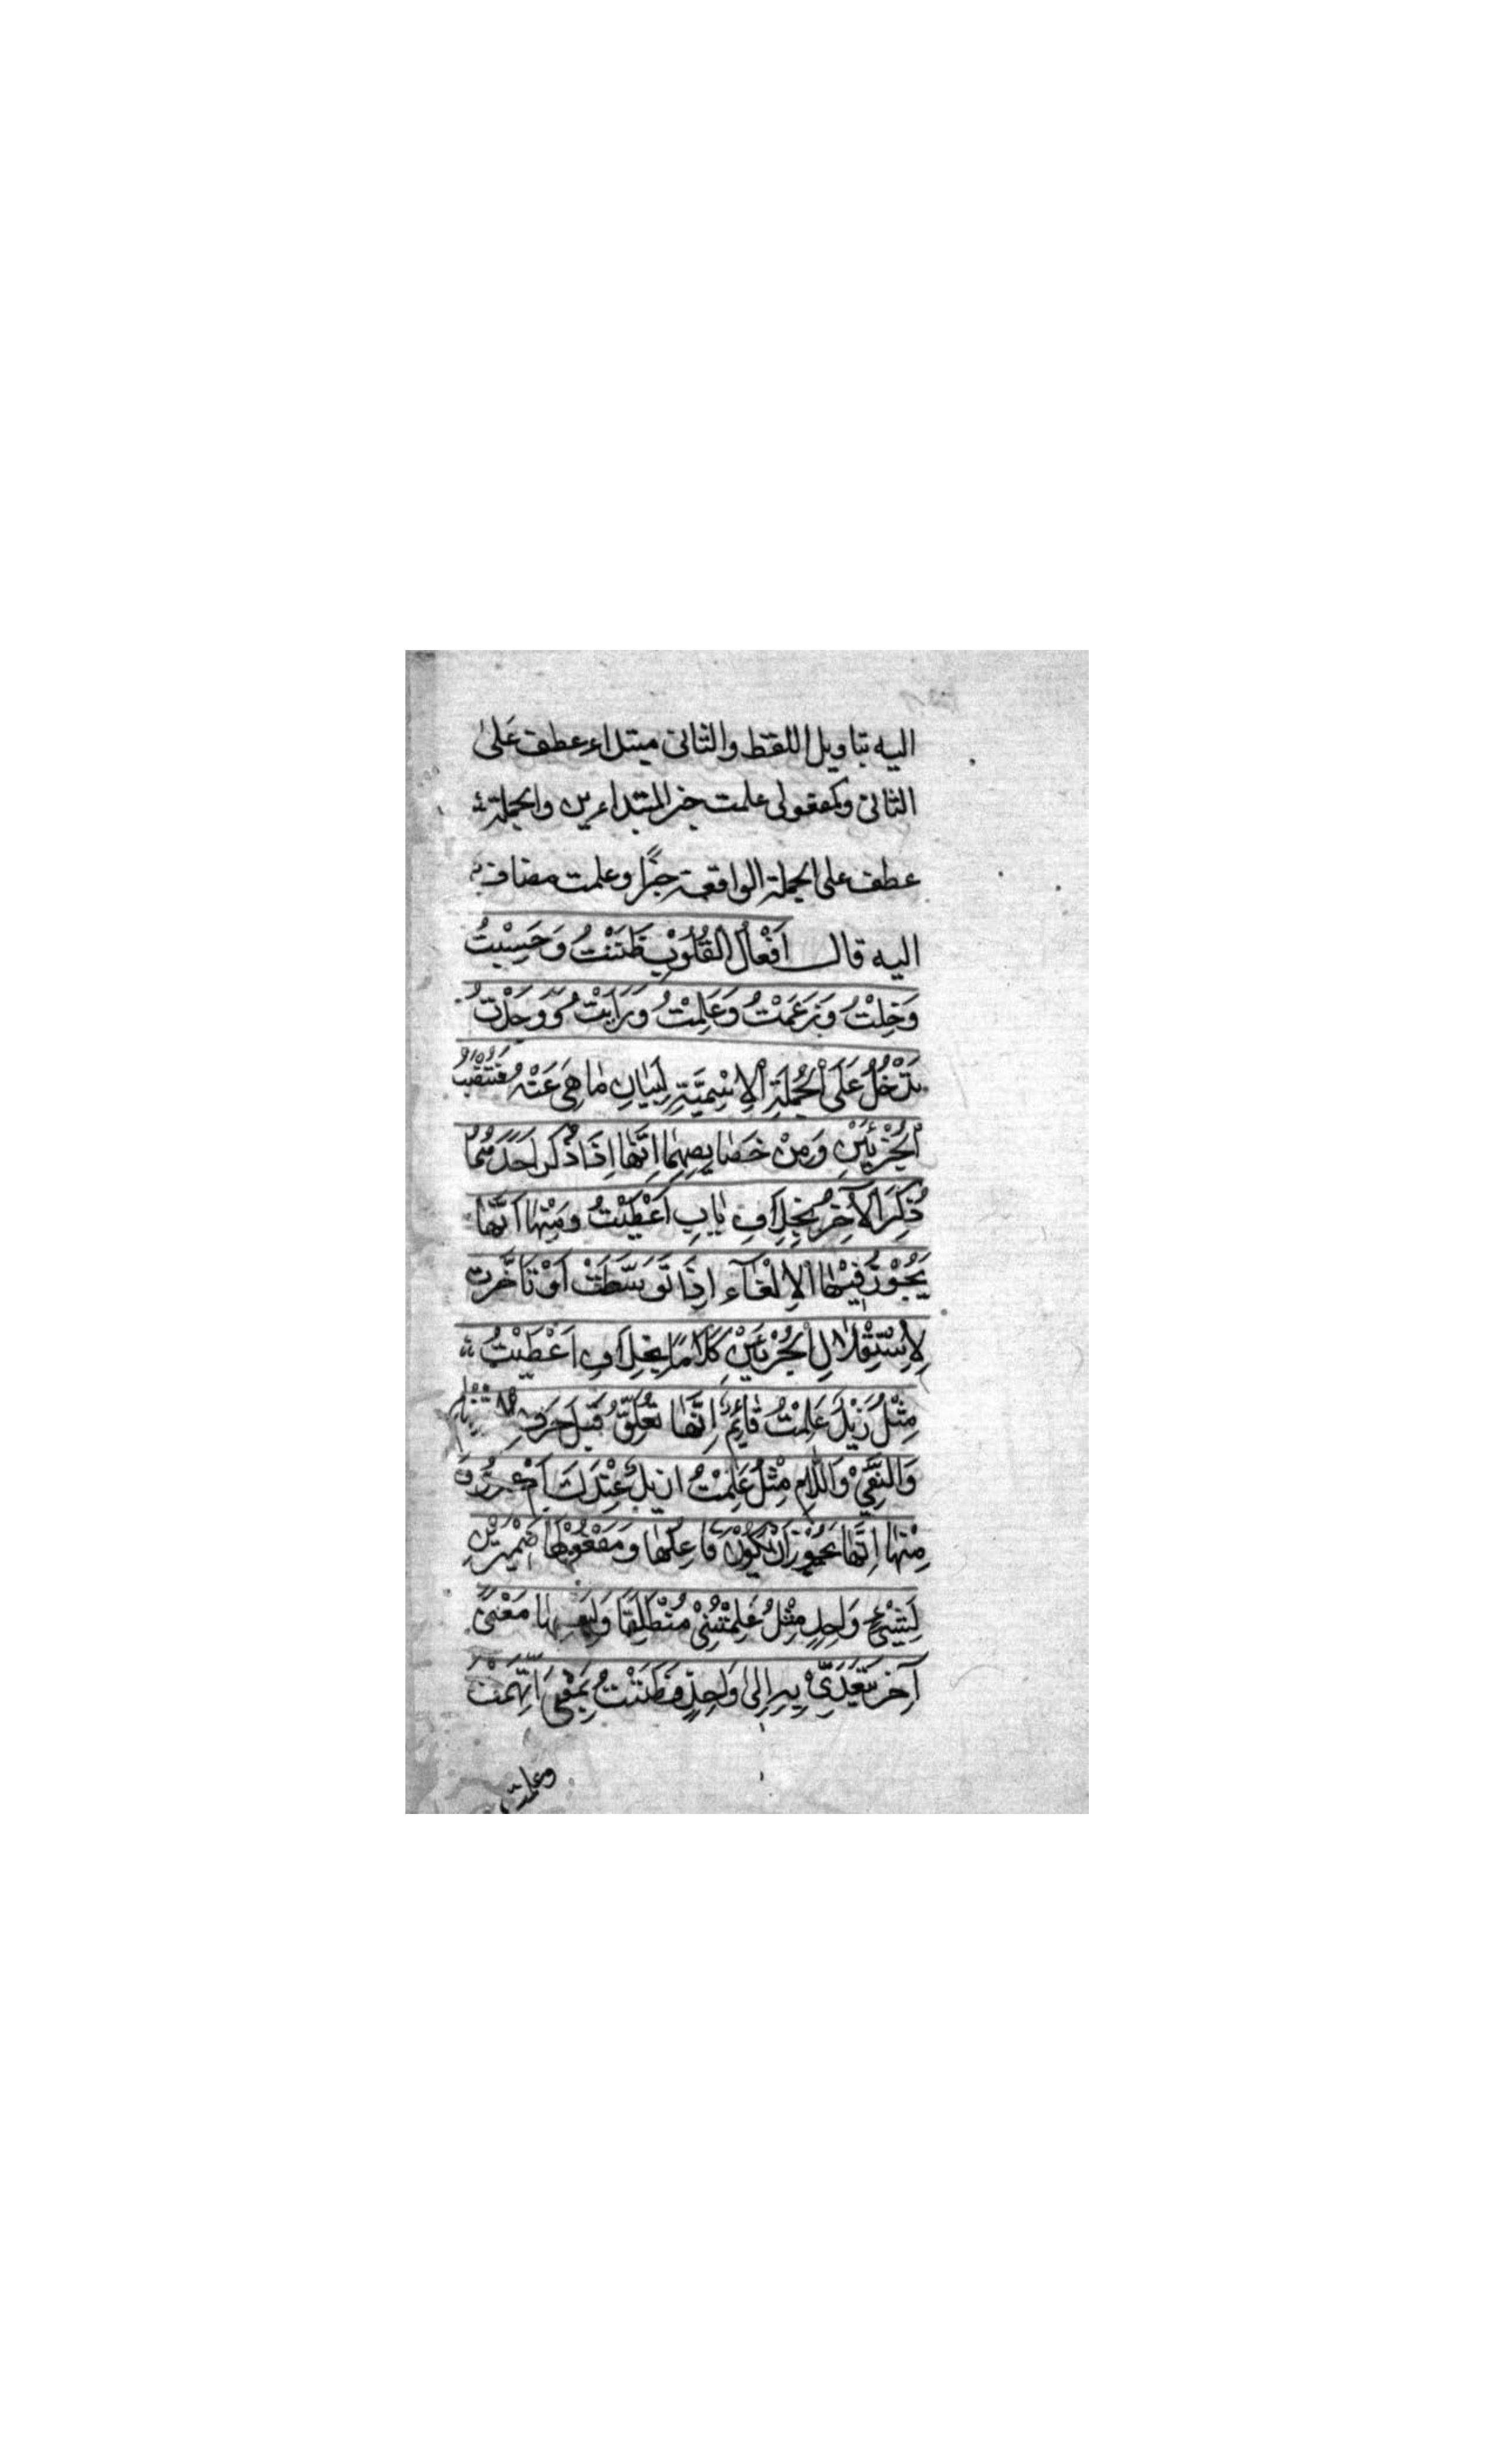 اليه بتاويل اللفظ والثانى مبتداء عطف عَلىٰ
الثانى وكمفعولى علمت خبر المبتداءين والجملة
عطف على الجملة الواقعة خبرًا وعلمت مضاف
اليه قال اَفْعَالُ القُلُوْبِ ظَنَنْتُ وَحَسِبْتُ
وَخِلْتُ وَزَعَمْتُ وَعَلِمْتُ وَرَاَيْتُ وَوَجَدْتُ
تَدْخُلُ عَلَى الْجُمْلَةِ الْاِسْمِيَّةِ لِبَيَانِ مَا هِىَ عَنْهُ فَتَنْصِبُ
الْجُزْئَيْنِ وَمِنْ خَصَايِصِهِمَا اِنَّهَا اِذَا ذُكِرَ اَحَدَهُمَا
ذُكِرَ الْآخِرُ بِخِلَافِ بَابِ اَعْطَيْتُ وَمِنْهَا اَنَّهَا
يَجُوْزُ فِيْهَا الْاِلْغَآء اِذَا تَوَسَّطَتْ اَوْ تَاَخَّرت
لِاِسْتِقْلَالِ الْجُزْئَيْنِ كَلَامًا بِخِلَافِ اَعْطَيْتُ
مِثْلُ زَيْدٌ عَلِمْتُ قَائِمٌ اِنَّهَا تُعَلِّقُ قَبْلَ حَرْفِ
وَالنَّفْىِ وَاللَّامِ مِثْلُ عَلِمْتُ ازيدٌ عِنْدَكَ اَمْ عمرٌو وَ
مِنْهَا اِنَّهَا يَجُوْزُ اَنْ يَكُوْنَ فَاعِلُهَا وَمَفْعُوْلُهَا ضَمِيْرَيْنِ
لِشَيْءٍ وَاحِدٍ مِثْلُ عَلِمْتُنِىْ مُنْطَلِقًا وَلِبَعْضِهَا مَعْنًى
آخَر يَتَعَدّىٰ بِهِ اِلىٰ وَاحِدٍ فَظَنَنْتُ بِمَعْنىٰ اِتَّهَمْتُ
وعلمت